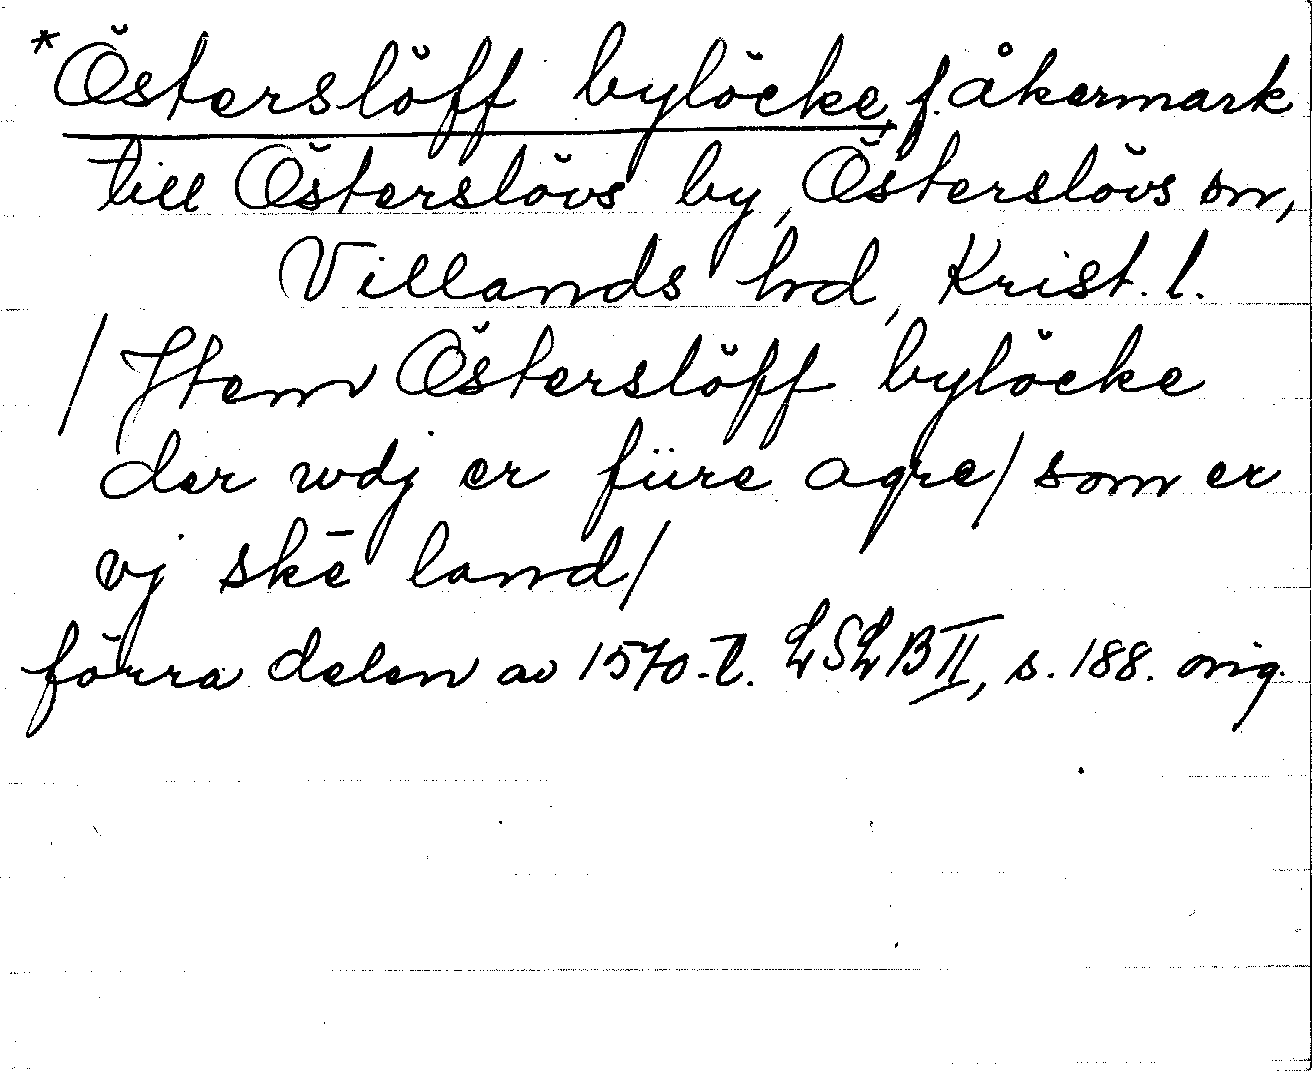 *Östersløff byløcke, f. åkermark
till Österslövs by, Österslövs sn,
Villands hd, Krist. l.
/ Jtem Österslöff bylöcke
der wdj er fiire agre / som er
vj skē land /
förra delen av 1570-t. LSLB II, s. 188. orig.